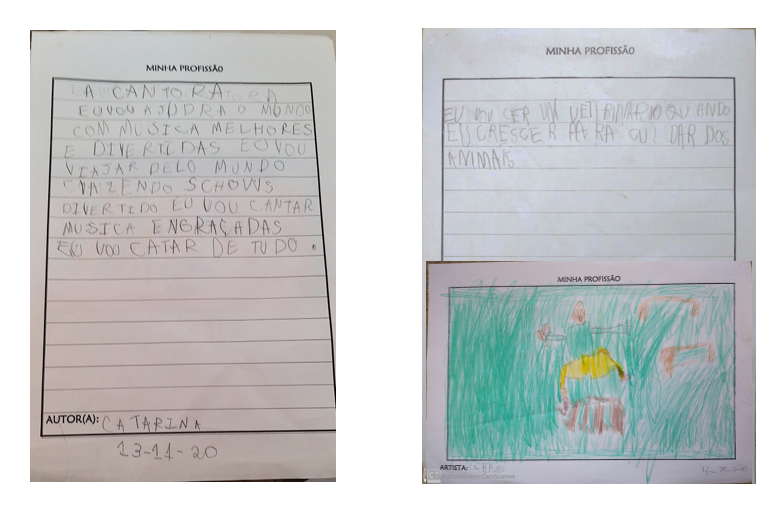 MINHA PROFISSÃO
A CANTORA
EU VOU AJUDRA O MUNDO
COM MUSICA MELHORES
E DIVERTIDAS EU VOU
VIAJAR PELO MUNDO
FAZENDO SCHOWS
DIVERTIDO EU VOU CANTAR
MUSICA ENGRAÇADAS
EU VOU CATAR DE TUDO.
AUTOR(A): CATARINA
13-11-20
MINHA PROFISSÃO
EU VOU CER UM VETERINÁRIO QUANDO
EU CRESCER PARA CUIDAR DOS
ANIMAIS
MINHA PROFISSÃO
ARTISTA: